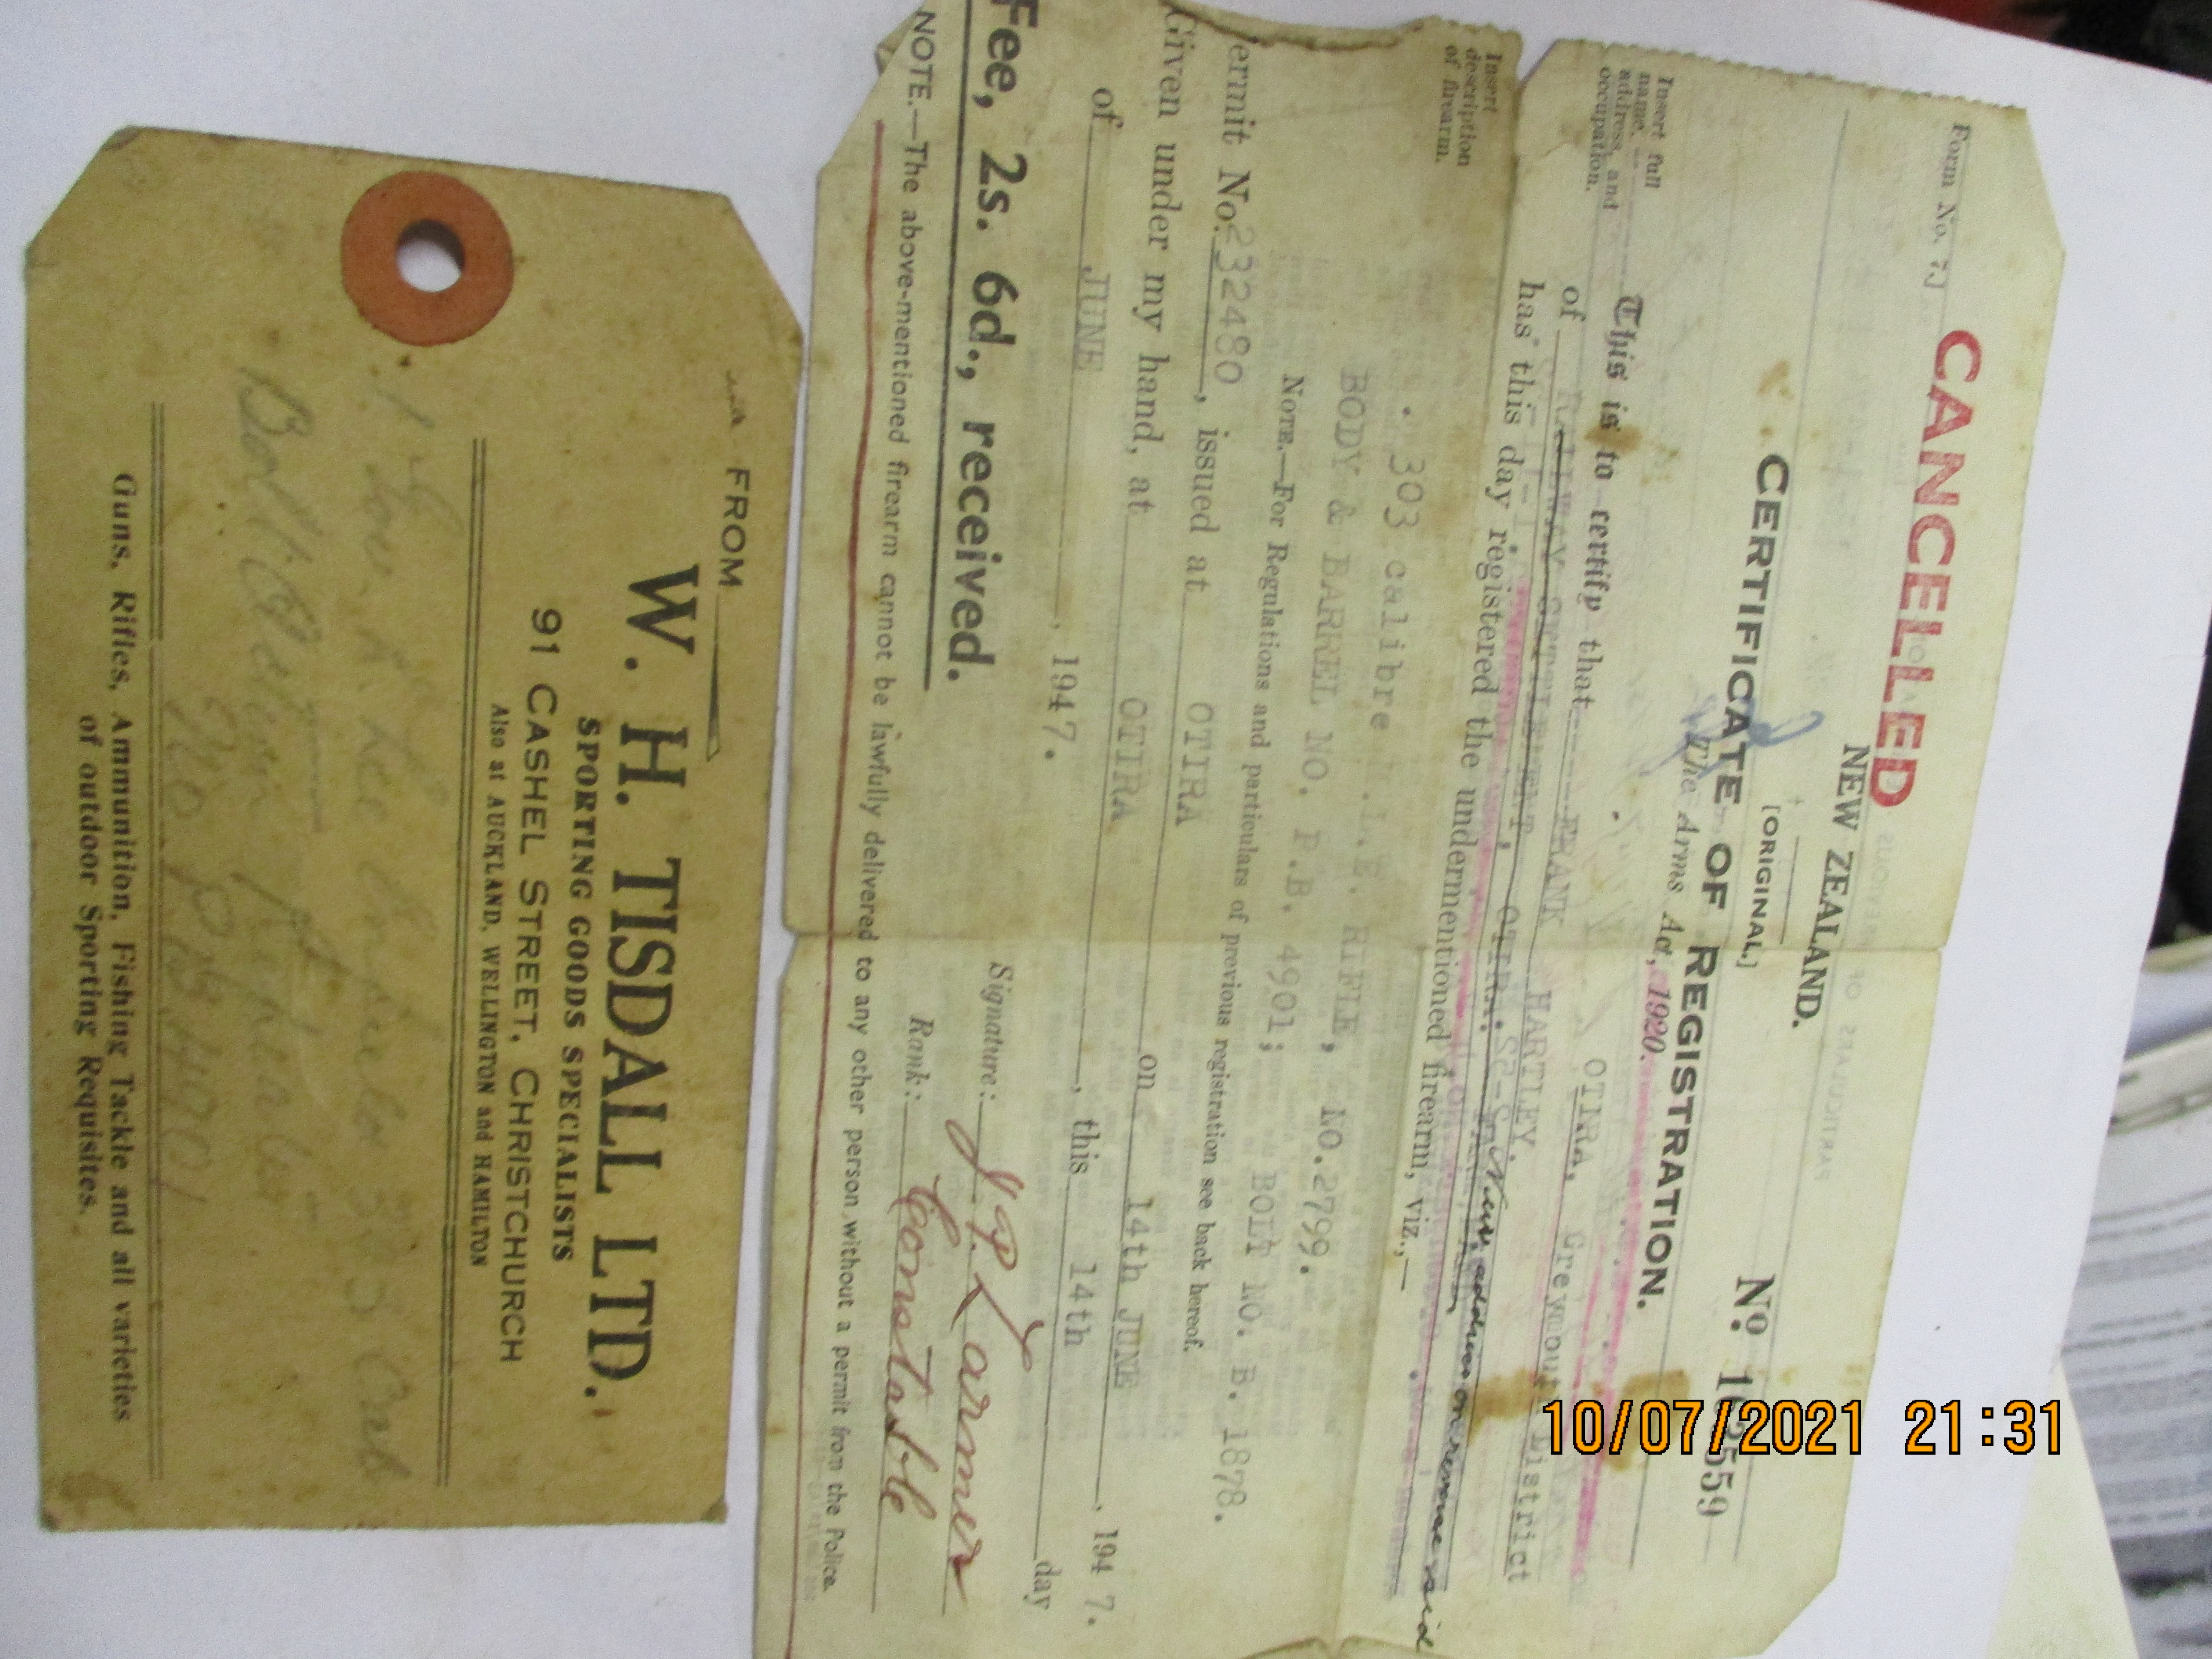 CANCELLED
Form No. 7J
NEW ZEALAND.
[ORIGINAL.]
CERTIFICATE OF REGISTRATION.
The Arms Act, 1920.
Insert full
name,
address, and
occupation.
This is to certify that FRANK HARTLEY.
of RAILWAY SETTLEMENT, OTIRA.
OTIRA, Greymouth District
New address on reverse side
has this day registered the undermentioned firearm, viz.,—
Insert
description
of firearm.
.303 calibre RIFLE, NO.2799.
BODY & BARREL NO. P.B. 4901; BOLT NO. B. 1878.
NOTE.—For Regulations and particulars of previous registration see back hereof.
ermit No. 232480, issued at OTIRA on 14th JUNE, 1947.
Given under my hand, at OTIRA, this 14th day
of JUNE, 1947.
Signature:
Rank: Constable
Fee, 2s. 6d., received.
NOTE.—The above-mentioned firearm cannot be lawfully delivered to any other person without a permit from the Police.
FROM
W. H. TISDALL LTD.
SPORTING GOODS SPECIALISTS
91 CASHEL STREET, CHRISTCHURCH
Also at AUCKLAND, WELLINGTON and HAMILTON
No PB 4901
Guns, Rifles, Ammunition, Fishing Tackle and all varieties
of outdoor Sporting Requisites.
10/07/2021 21:31